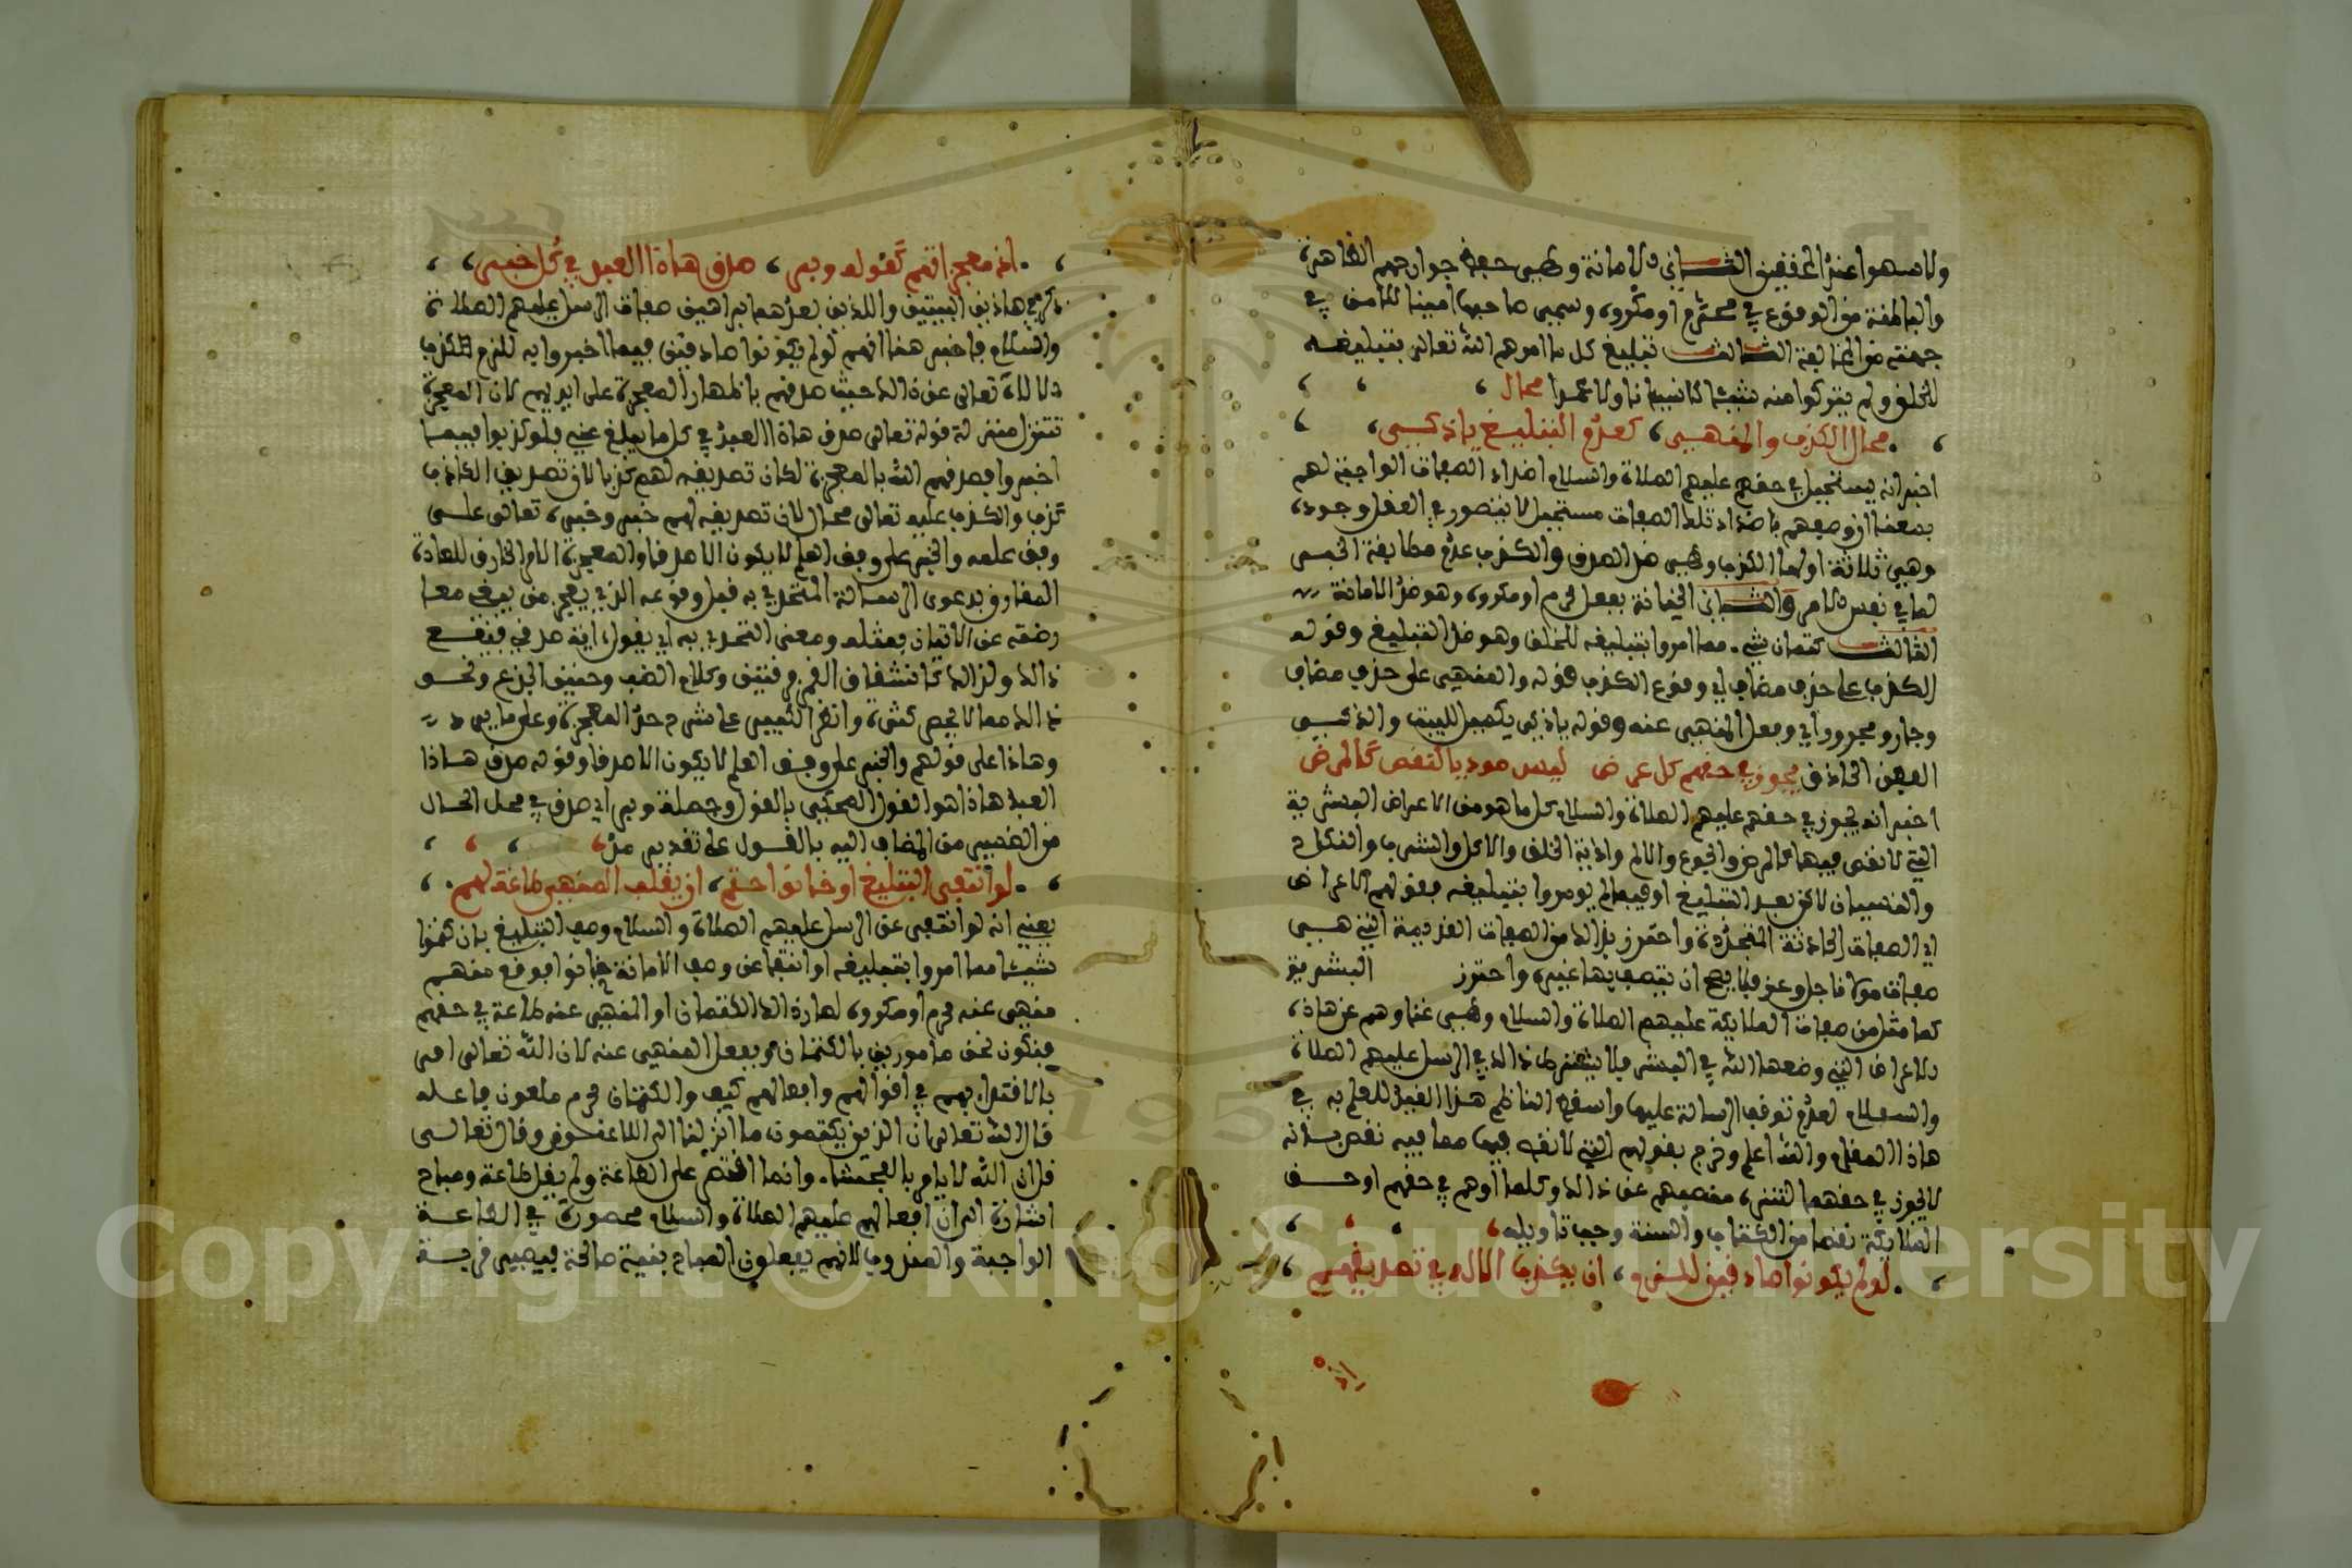 ولا سهوا عند المحققين الثاني الامانة وهي حفظ جوارحهم الظاهرة
والباطنة من الوقوع في محرم او مكروه وسمي صاحبها امينا للامن في
جهته من المخالفة الثالث تبليغ كل ما امرهم الله تعالى بتبليغه
للخلق ولم يتركوا منه شيئا لا نسيانا ولا عمدا محال
محال الكذب والمنهي كعدم التبليغ ياذكي
اخبر انه يستحيل في حقهم عليهم الصلاة والسلام اضداد الصفات الواجبة لهم
بمعنى ان وصفهم باضداد تلك الصفات مستحيل لا يتصور في العقل وجوده
وهي ثلاثة اولها الكذب وهي ضد الصدق والكذب عدم مطابقة الخبر
لما في نفس الامر والثاني الخيانة بفعل محرم او مكروه وهو ضد الامانة
الثالث كتمان شيء مما امروا بتبليغه للخلق وهو ضد التبليغ وقوله
الكذب على حذف مضاف اي وقوع الكذب قوله والمنهي على حذف مضاف
وجار ومجرور اي وفعل المنهي عنه وقوله ياذكي تكميل للبيت والذكي
الفطن الحاذق يجوز في حقهم كل عرض ليس موديا لنقص كالمرض
اخبر انه يجوز في حقهم عليهم الصلاة والسلام كل ما هو من الاعراض البشرية
التي لا نقص فيها كالمرض والجوع والالم واذية الخلق والاكل والشرب والنكاح
والنسيان لاكن بعد التبليغ او فيما لم يومروا بتبليغه فقولهم الاعراض
اي الصفات الحادثة المتجددة واحترز بذالك من الصفات القديمة التي هي
صفات مولانا جل وعز فلا يصح ان يتصف بها غيره واحترز البشرية
كما مثل من صفات الملايكة عليهم الصلاة والسلام وهي غناوهم عن هاذه
الاعراض التي وضعها الله في البشر فلا يشترط ذالك في الرسل عليهم الصلاة
والسلام لعدم توقف الرسالة عليها واسقط الناظم هذا القيد للعلم به في
هاذا المقام والله اعلم وخرج بقولهم التي لا نقص فيها مما فيه نقص بانه
لا يجوز في حقهم لتنزه منصبهم عن ذالك وكلما اوهم في حقهم او حق
الملايكة نقصا من الكتاب والسنة وجب تاويله
لو لم يكونوا صادقين للزم ان يكذب الاله في تصديقهم
اذ معجزاتهم كقوله وبر صدق هاذا العبد في كل خبر
ذكر في هاذين البيتين واللذين بعدهما براهين صفات الرسل عليهم الصلاة
والسلام فاخبر هنا انهم لو لم يكونوا صادقين فيما اخبروا به للزم الكذب
الالاه تعالى عن ذالك حيث صدقهم باظهار المعجزة على ايديهم لان المعجزة
تتنزل منزلة قوله تعالى صدق هاذا العبد في كل ما يبلغ عني فلو كذبوا فيما
اخبروا وصدقهم الله بالمعجزة لكان تصديقه لهم كذبا لان تصديق الكاذب
كذب والكذب عليه تعالى محال لان تصديقه لهم خبر وخبره تعالى على
وفق علمه والخبر على وفق العلم لا يكون الا صدقا والمعجزة الامر الخارق للعادة
المقارن بدعوى الرسالة المتحدى به قبل وقوعه الذي يعجز من يبغي معا
رضته عن الاتيان بمثله ومعنى التحدي به اي يقول اية صدقي فيقع
ذالك ولذالك كانشقاق القمر فرقتين وكلام الضب وحنين الجذع ونحو
ذالك مما لا يحصى كثرة وانظر التعبير على شرح حد المعجزة وعلى ما يرد
وهاذا على قولهم والخبر على وفق العلم لا يكون الا صدقا وقوله صدق هاذا
العبد هاذا هو القول المحكي بالقول وجملة وبر اي صدق في محل الحال
من الضمير من المضاف اليه بالقول على تقدير مد
لو انتفى التبليغ او خانوا حتم ان يقلب المنهي طاعة لهم
يعني انه لو انتفى عن الرسل عليهم الصلاة والسلام وصف التبليغ بان كتموا
شيئا مما امروا بتبليغه او انتفا عن وصف الامانة خانوا فوقع منهم
منهي عنه محرم او مكروه لصار ذالك الكتمان او المنهي عنه طاعة في حقهم
فنكون نحن مامورين بالكتمان وبفعل المنهي عنه لان الله تعالى امر
بالاقتداء بهم في اقوالهم وافعالهم كيف والكتمان محرم ملعون فاعله
قال الله تعالى ان الذين يكتمون ما انزلنا الى اللاعنون وقال تعالى
قل ان الله لا يامر بالفحشاء وانما اقتصر على الطاعة ولم يقل طاعة ومباح
اشارة الى ان افعالهم عليهم الصلاة والسلام محصورة في الطاعة
الواجبة والمندوب لانهم يفعلون المباح بنية صالحة فيصير قربة